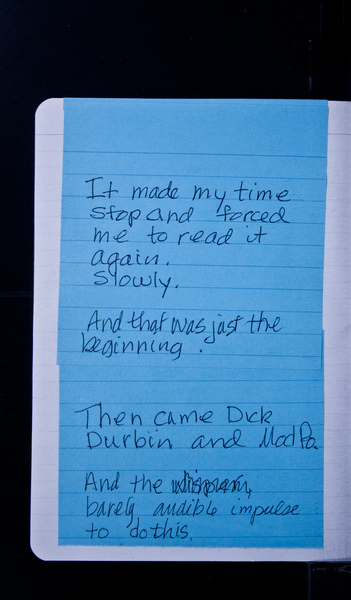 It made my time
stop and forced
me to read it
again.
Slowly.
And that was just the
beginning.
Then came Dick
Durbin and
And the
barely audible impulse
to do this.